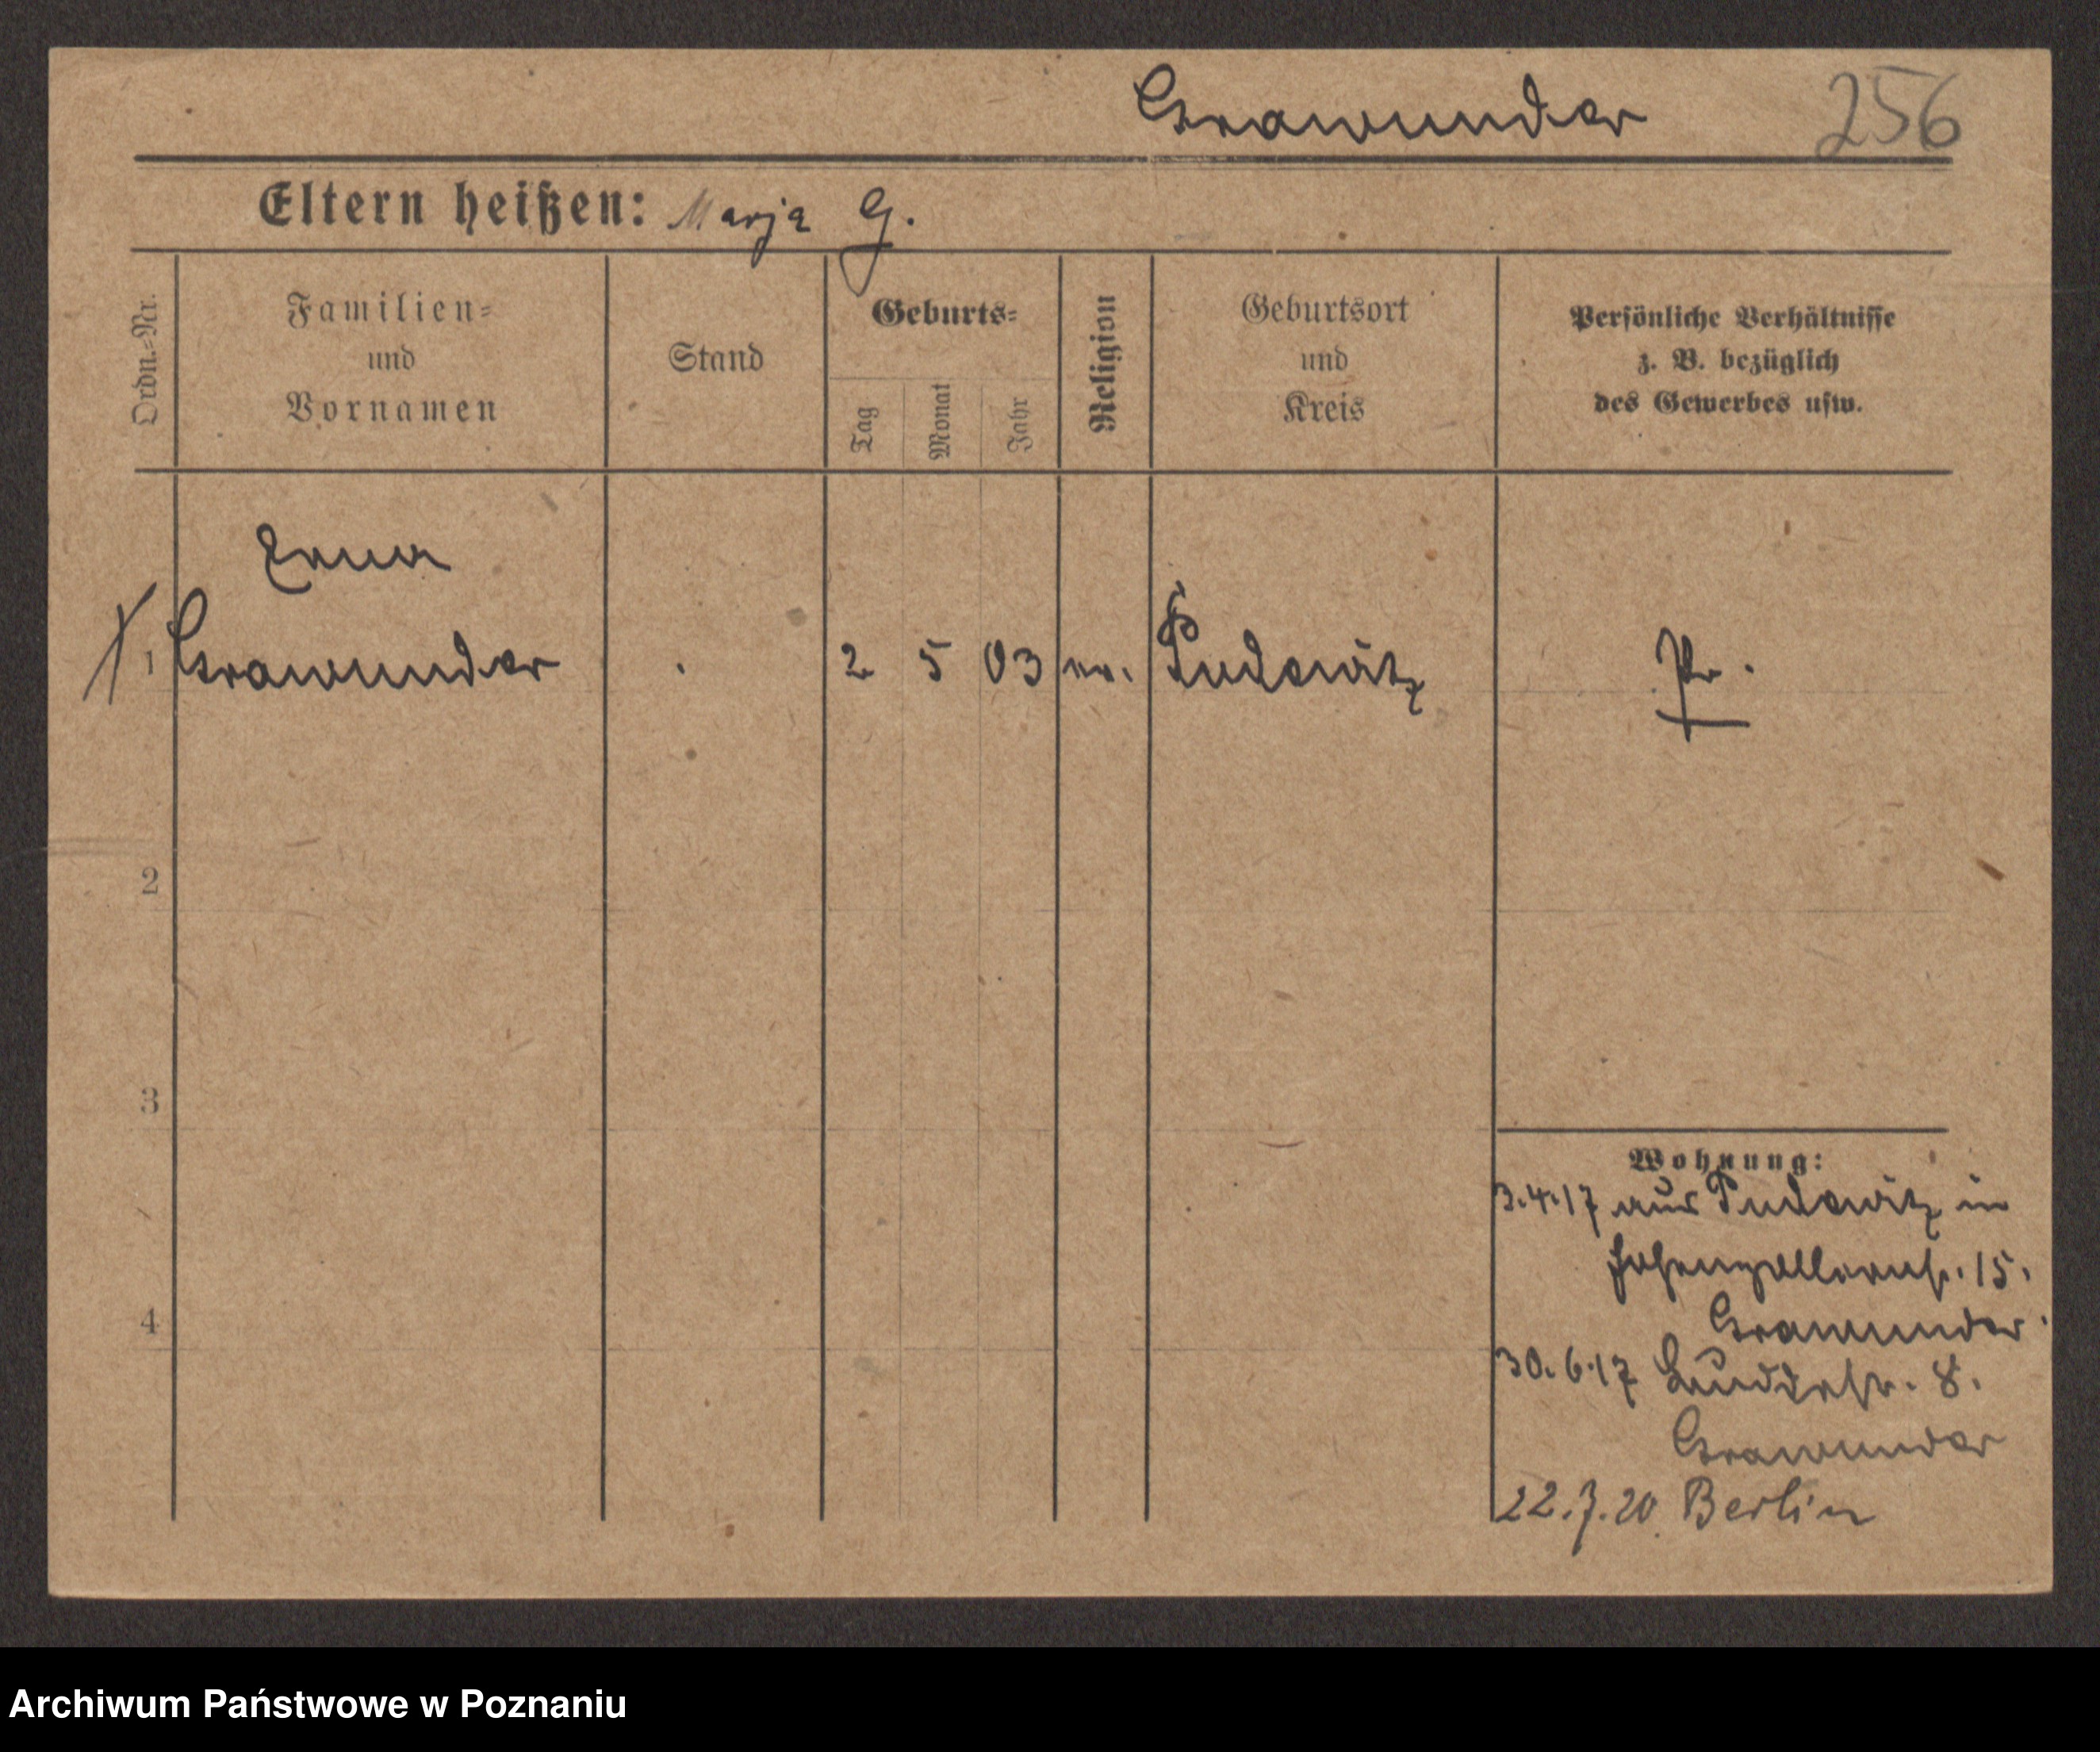 Grawunder 256
Eltern heißen: Marja G.
Ordn.-Nr.
Familien-
und
Vornamen
Stand
Geburts-
Tag
Monat
Jahr
Religion
Geburtsort
und
Kreis
Persönliche Verhältnisse
z. B. bezüglich
des Gewerbes usw.
Erna
1 Grawunder 2 5 03 ev. Pudewitz Pr.
2
3
4
Wohnung:
3.4.17 aus Pudewitz in
Hohenzollernstr. 15.
Grawunder
30.6.17 8.
Grawunder
22.7.20. Berlin
Archiwum Państwowe w Poznaniu